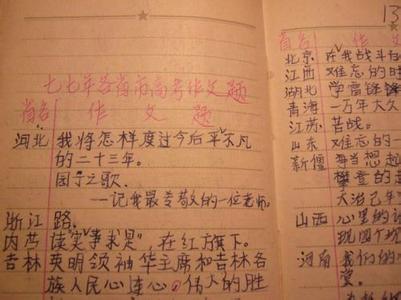 七七年各省市高考作文题
省名 作文题
河北 我将怎样度过今后不平凡
的二十三年。
园丁之歌
——记我最尊敬的一位老师。
浙江 路。
内蒙 谈"实事求是"，在红旗下。
吉林 英明领袖华主席和吉林各
族人民心连心。伟人的胜
13
省名 作文
北京 我在战斗
江西 难忘的时
湖北 学雷锋
青海 一万年太久
江苏 苦战。
山东 难忘的一
新疆 每当想起
攀登的
大治之年
山西 心里的话
河南 我们的
望。